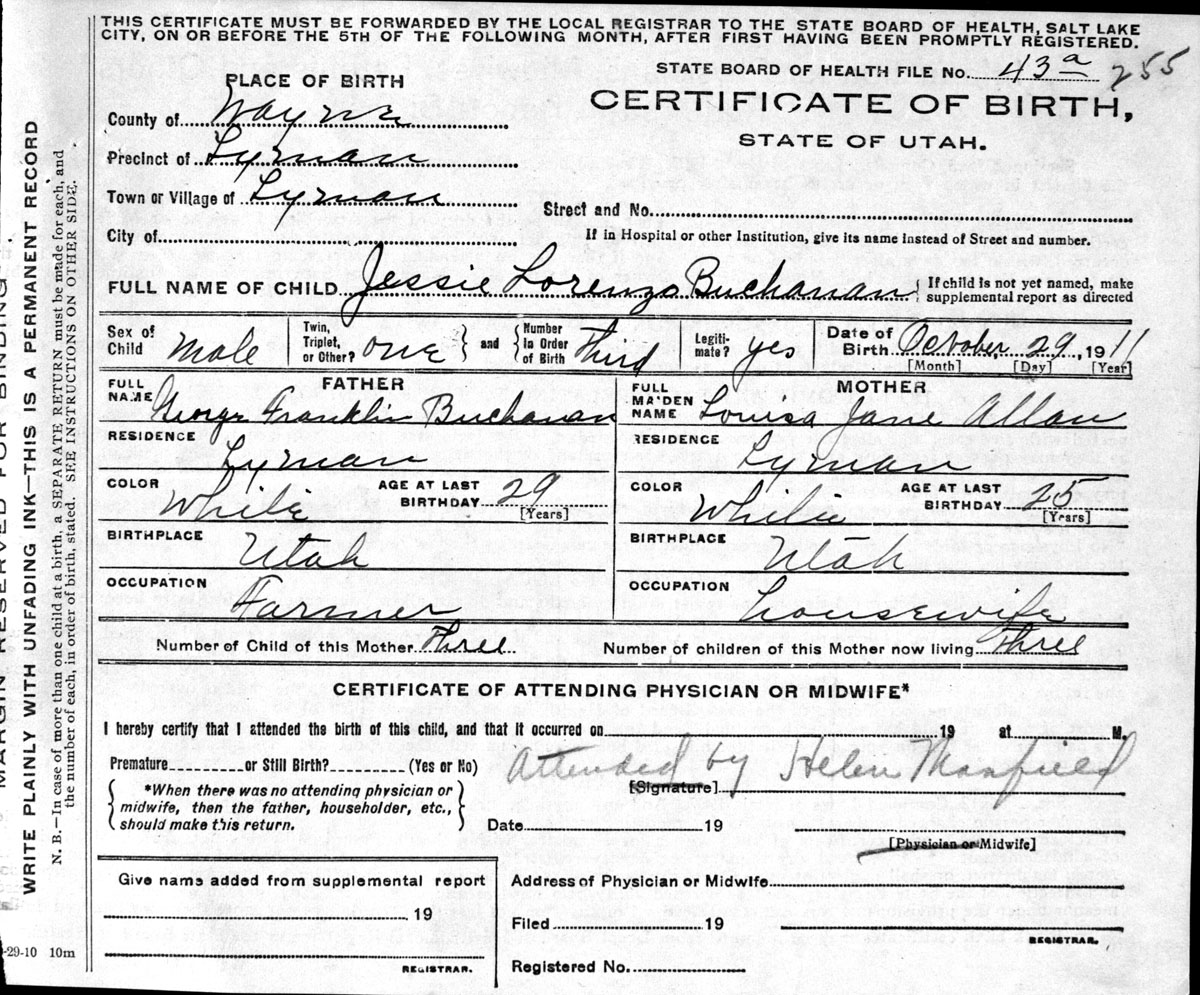 THIS CERTIFICATE MUST BE FORWARDED BY THE LOCAL REGISTRAR TO THE STATE BOARD OF HEALTH, SALT LAKE
CITY, ON OR BEFORE THE 5TH OF THE FOLLOWING MONTH, AFTER FIRST HAVING BEEN PROMPTLY REGISTERED.
STATE BOARD OF HEALTH FILE No. 43a 255
PLACE OF BIRTH
CERTIFICATE OF BIRTH,
STATE OF UTAH.
County of Wayne
Precinct of Lyman
Town or Village of Lyman
Street and No.
City of
If in Hospital or other Institution, give its name instead of Street and number.
FULL NAME OF CHILD Jessie Lorenzo Buchanan { If child is not yet named, make
supplemental report as directed
Sex of Child Male
Twin, Triplet, or Other? one } and { Number in Order of Birth Third
Legiti-mate? yes
Date of Birth October, 29, 1911
[Month] [Day] [Year]
FATHER
FULL NAME George Franklin Buchanan
RESIDENCE Lyman
COLOR White AGE AT LAST BIRTHDAY 29 [Years]
BIRTHPLACE Utah
OCCUPATION Farmer
MOTHER
FULL MAIDEN NAME Louisa Jane Allan
RESIDENCE Lyman
COLOR White AGE AT LAST BIRTHDAY 25 [Years]
BIRTHPLACE Utah
OCCUPATION housewife
Number of Child of this Mother Three Number of children of this Mother now living Three
CERTIFICATE OF ATTENDING PHYSICIAN OR MIDWIFE*
I hereby certify that I attended the birth of this child, and that it occurred on 19 at M.
Premature or Still Birth? (Yes or No) Attended by Helen Manfield
[Signature]
{ *When there was no attending physician or
midwife, then the father, householder, etc.,
should make this return. }
Date 19
[Physician or Midwife]
Give name added from supplemental report
19
REGISTRAR.
Address of Physician or Midwife
Filed 19
REGISTRAR.
Registered No.
MARGIN RESERVED FOR BINDING.
WRITE PLAINLY WITH UNFADING INK—THIS IS A PERMANENT RECORD
N. B.—In case of more than one child at a birth, a SEPARATE RETURN must be made for each, and
the number of each, in order of birth, stated. SEE INSTRUCTIONS ON OTHER SIDE.
-29-10 10m